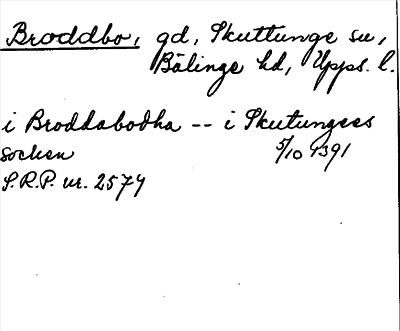 Broddbo, gd, Skuttunge sn,
Bälinge hd, Upps. l.
i Broddabodha -- i Skutungees
socken 5/10 1391
S.R.P. nr. 2574